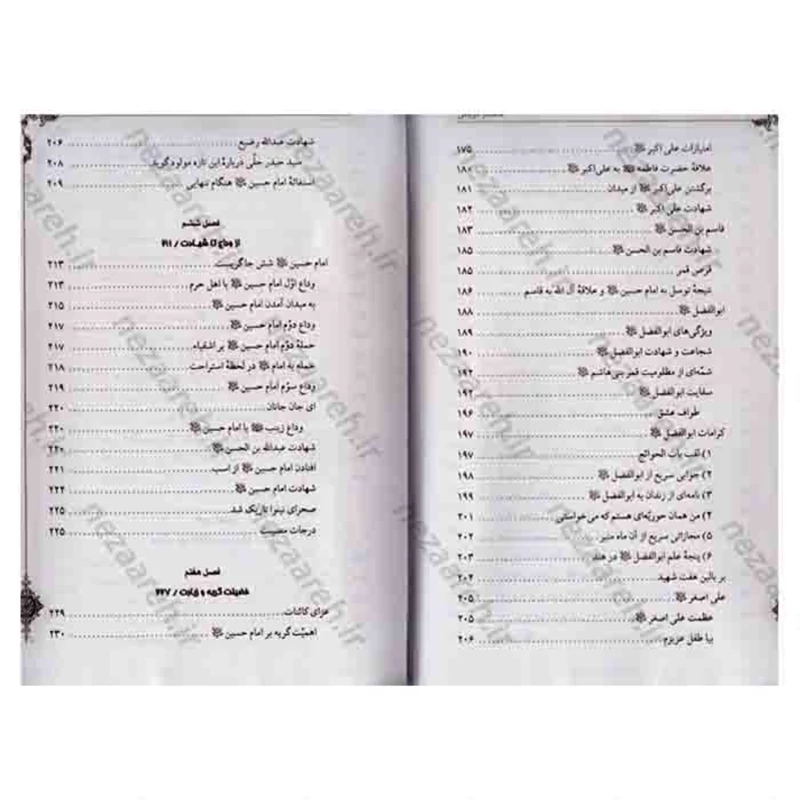 امتیازات علی اکبر ﷺ ۱۷۵
علاقهٔ حضرت فاطمه ﷺ به علی‌اکبر ﷺ ۱۸۰
برگشتن علی‌اکبر ﷺ از میدان ۱۸۱
شهادت علی اکبر ﷺ ۱۸۲
قاسم بن الحسن ﷺ ۱۸۳
شهادت قاسم بن الحسن ﷺ ۱۸۵
قرص قمر ۱۸۵
نتیجهٔ توسل به امام حسین ﷺ و علاقهٔ آل الله به قاسم ۱۸۶
ابوالفضل ﷺ ۱۸۸
ویژگی‌های ابوالفضل ﷺ ۱۸۹
شجاعت و شهادت ابوالفضل ﷺ ۱۹۰
شمّه‌ای از مظلومیت قمر بنی‌هاشم ﷺ ۱۹۲
سقایت ابوالفضل ﷺ ۱۹۲
طواف عشق ۱۹۶
کرامات ابوالفضل ﷺ ۱۹۷
۱) لقب باب الحوائج ۱۹۷
۲) جوابی سریع از ابوالفضل ﷺ ۱۹۸
۳) نامه‌ای از زندان به ابوالفضل ﷺ ۱۹۹
۴) من همان حوریّه‌ای هستم که می خواستی ۲۰۱
۵) مجازاتی سریع از آن ماه منیر ۲۰۲
۶) پنجهٔ علم ابوالفضل ﷺ در هند ۲۰۳
بر بالین هفت شهید ۲۰۴
علی اصغر ﷺ ۲۰۵
عظمت علی اصغر ﷺ ۲۰۵
بیا طفل عزیزم ۲۰۶
شهادت عبدالله رضیع ۲۰۶
سید حیدر حلّی دربارهٔ این تازه مولود گوید ۲۰۸
استغاثهٔ امام حسین ﷺ هنگام تنهایی ۲۰۹
فصل ششم
از وداع تا شهادت / ۲۱۱
امام حسین ﷺ شش جا گریست ۲۱۳
وداع اوّل امام حسین ﷺ با اهل حرم ۲۱۳
به میدان آمدن امام حسین ﷺ ۲۱۵
وداع دوّم امام حسین ﷺ ۲۱۷
حملهٔ دوّم امام حسین ﷺ بر اشقیاء ۲۱۷
حمله به امام ﷺ در لحظهٔ استراحت ۲۱۸
وداع سوّم امام حسین ﷺ ۲۱۹
ای جان جانان ۲۲۰
وداع زینب ﷺ با امام حسین ﷺ ۲۲۰
شهادت عبدالله بن الحسن ﷺ ۲۲۰
افتادن امام حسین ﷺ از اسب ۲۲۱
شهادت امام حسین ﷺ ۲۲۴
صحرای نینوا تاریک شد ۲۲۵
درجات مصیبت ۲۲۵
فصل هفتم
فضیلت گریه و زیارت / ۲۲۷
عزای کائنات ۲۲۹
اهمیّت گریه بر امام حسین ﷺ ۲۳۰
nezaareh.ir